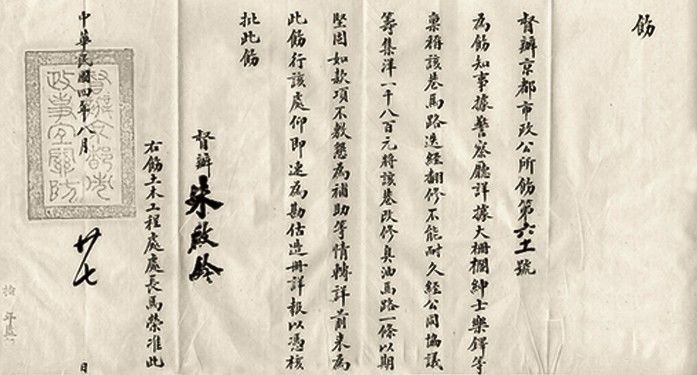 飭
督辦京都市政公所飭第六十一號
為飭知事據警察廳詳據大柵欄紳士樂鐸等
稟稱該巷馬路迭經翻修不能耐久經公同協議
籌集洋一千八百元將該巷改修臭油馬路一條以期
堅固如款項不敷懇為補助等情轉詳前來為
此飭行該處仰即速為勘估造冊詳報以憑核
批此飭
督辦朱啟鈐
右飭土木工程處處長馬榮准此
中華民國四年八月廿七日
督辦京都市政事宜關防